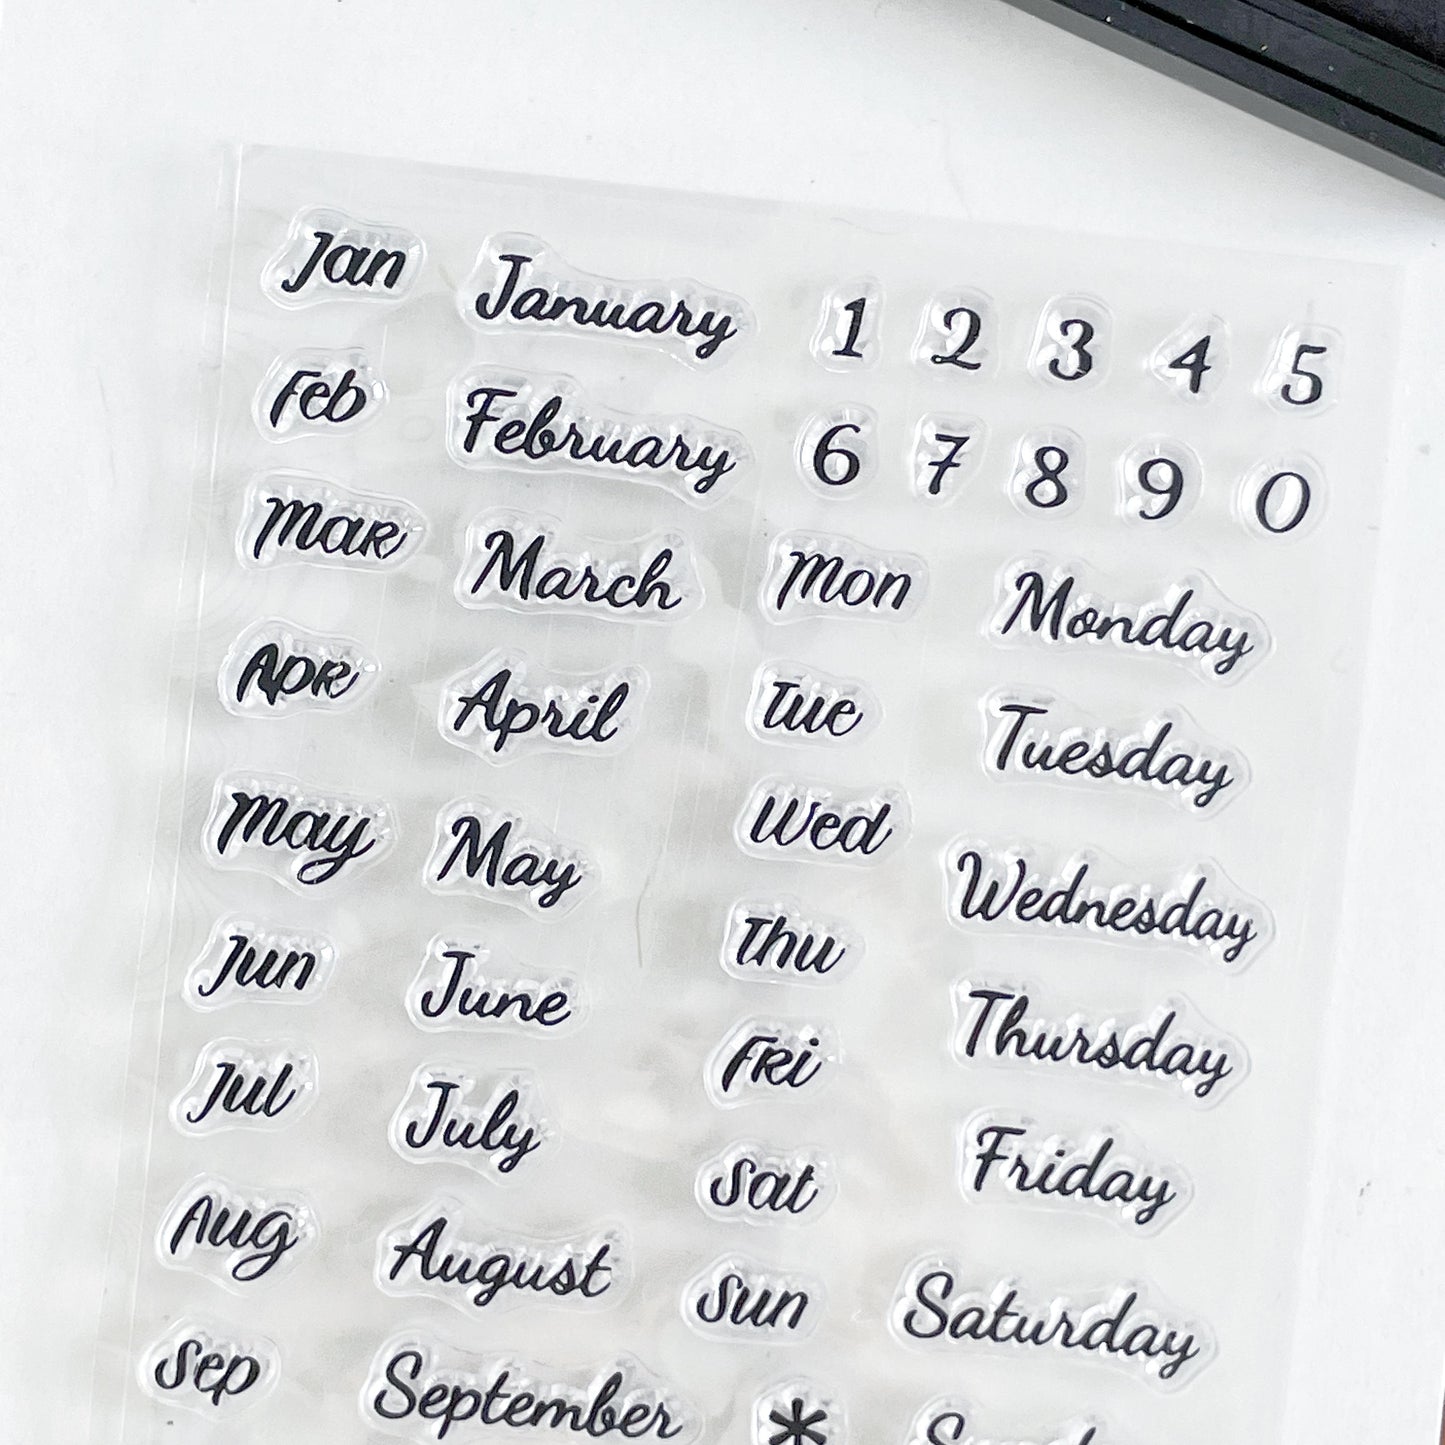 Jan January 1 2 3 4 5
Feb February 6 7 8 9 0
Mar March Mon Monday
Apr April Tue Tuesday
May May Wed Wednesday
Jun June Thu Thursday
Jul July Fri Friday
Aug August Sat Saturday
Sep September Sun
*